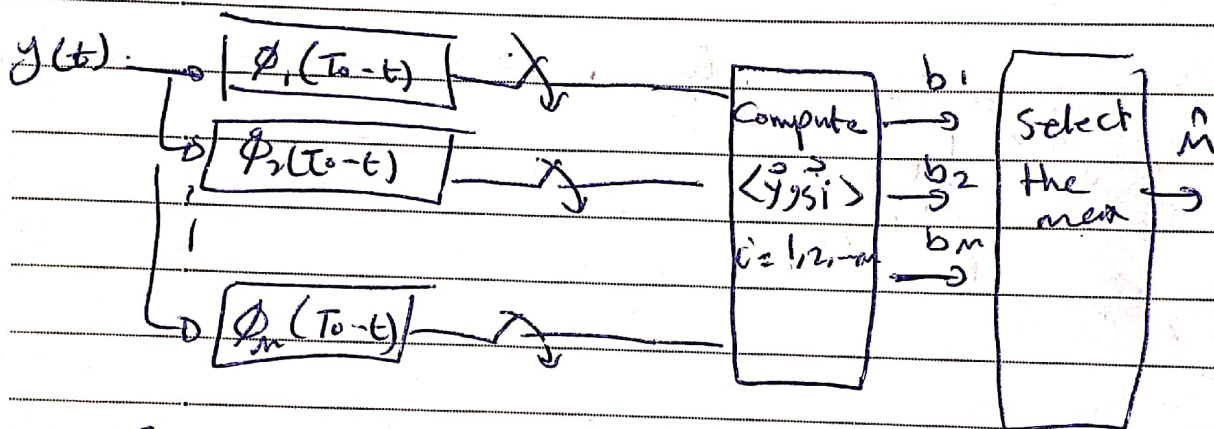 y(t)
φ₁(To-t)
φ₂(To-t)
φₘ(To-t)
Compute
<y⃗,s⃗i>
i = 1,2,-m
b1
b2
bm
Select
the
max
m̂